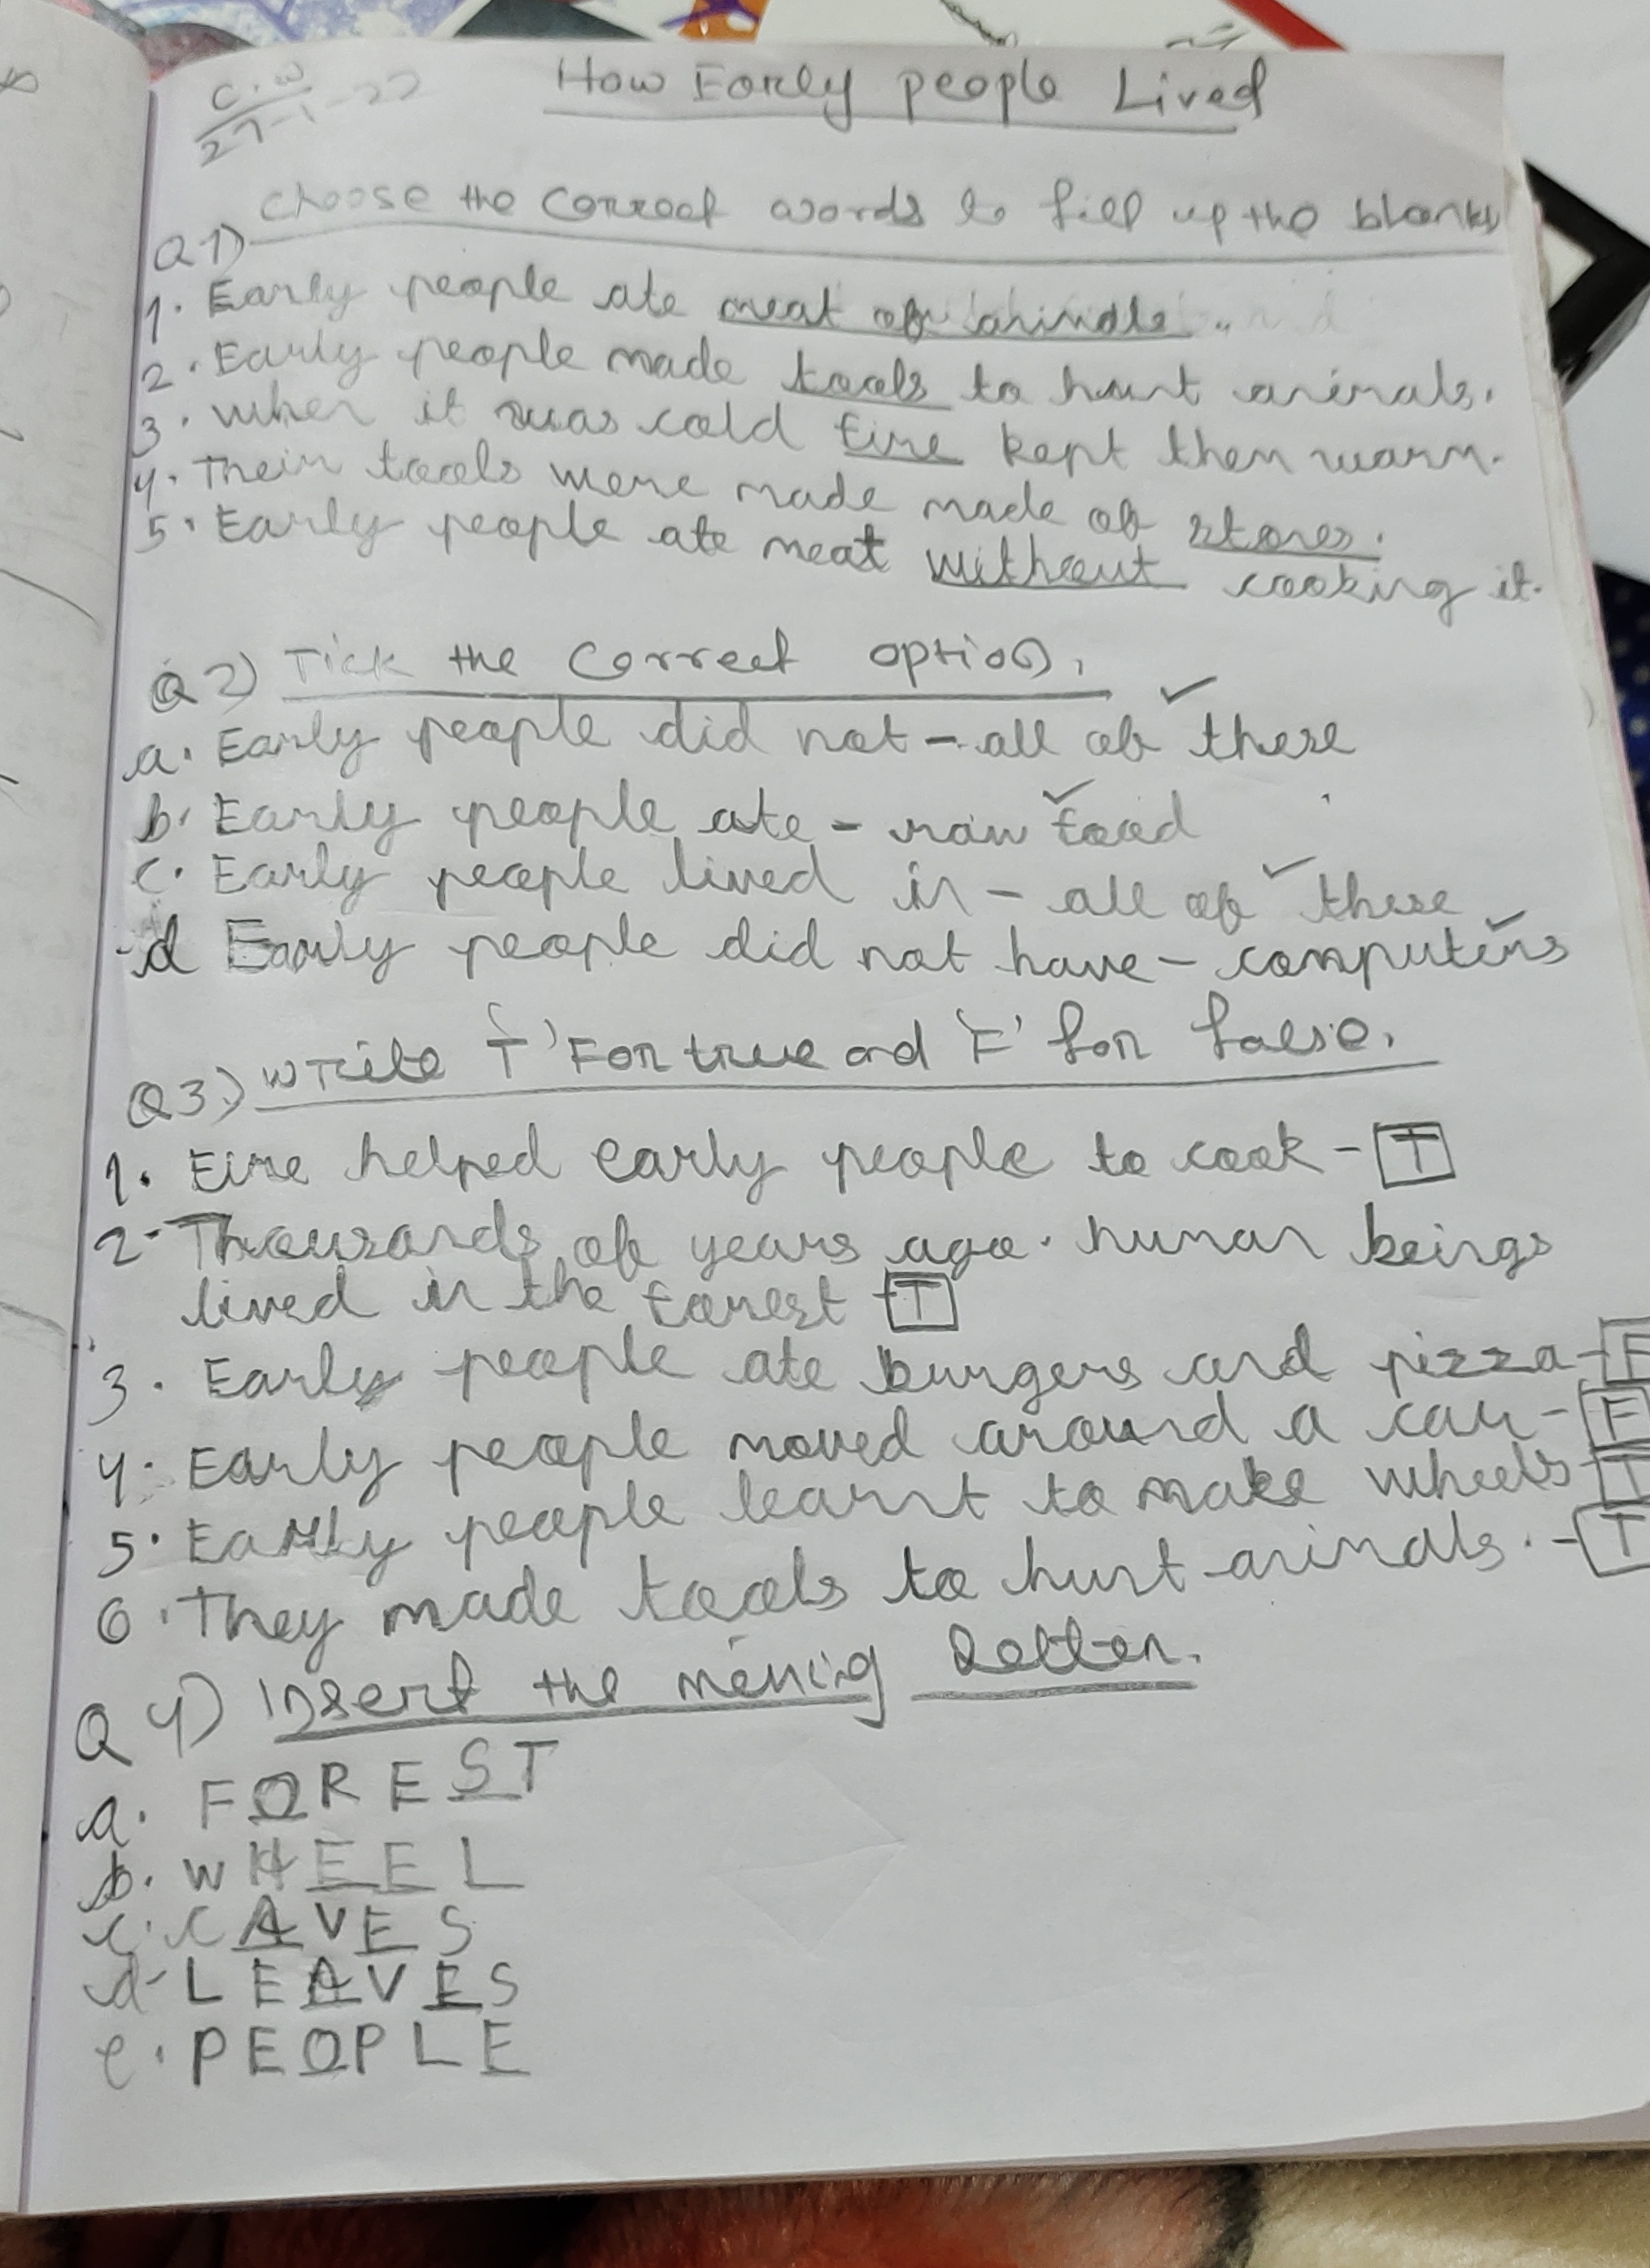 C.W
27-1-22
How Early people Lived
Q1) Choose the Correct words to fill up the blanks
1. Early people ate meat of animals.
2. Early people made tools to hunt animals.
3. When it was cold fire kept them warm.
4. Their tools were made made of stones.
5. Early people ate meat without cooking it.
Q2) Tick the Correct option.
a. Early people did not - all of ✓ these
b. Early people ate - raw ✓ food
c. Early people lived in - all of ✓ these
d Early people did not have - computers ✓
Q3) Write 'T' For true and 'F' for false.
1. Fire helped early people to cook - T
2- Thousands of years ago. human beings
lived in the forest - T
3. Early people ate burgers and pizza - F
4. Early people moved around a car - F
5. Early people learnt to make wheels - T
6. They made tools to hunt animals. - T
Q4) Insert the letter.
a. FOREST
b. WHEEL
c. CAVES
d- LEAVES
e. PEOPLE